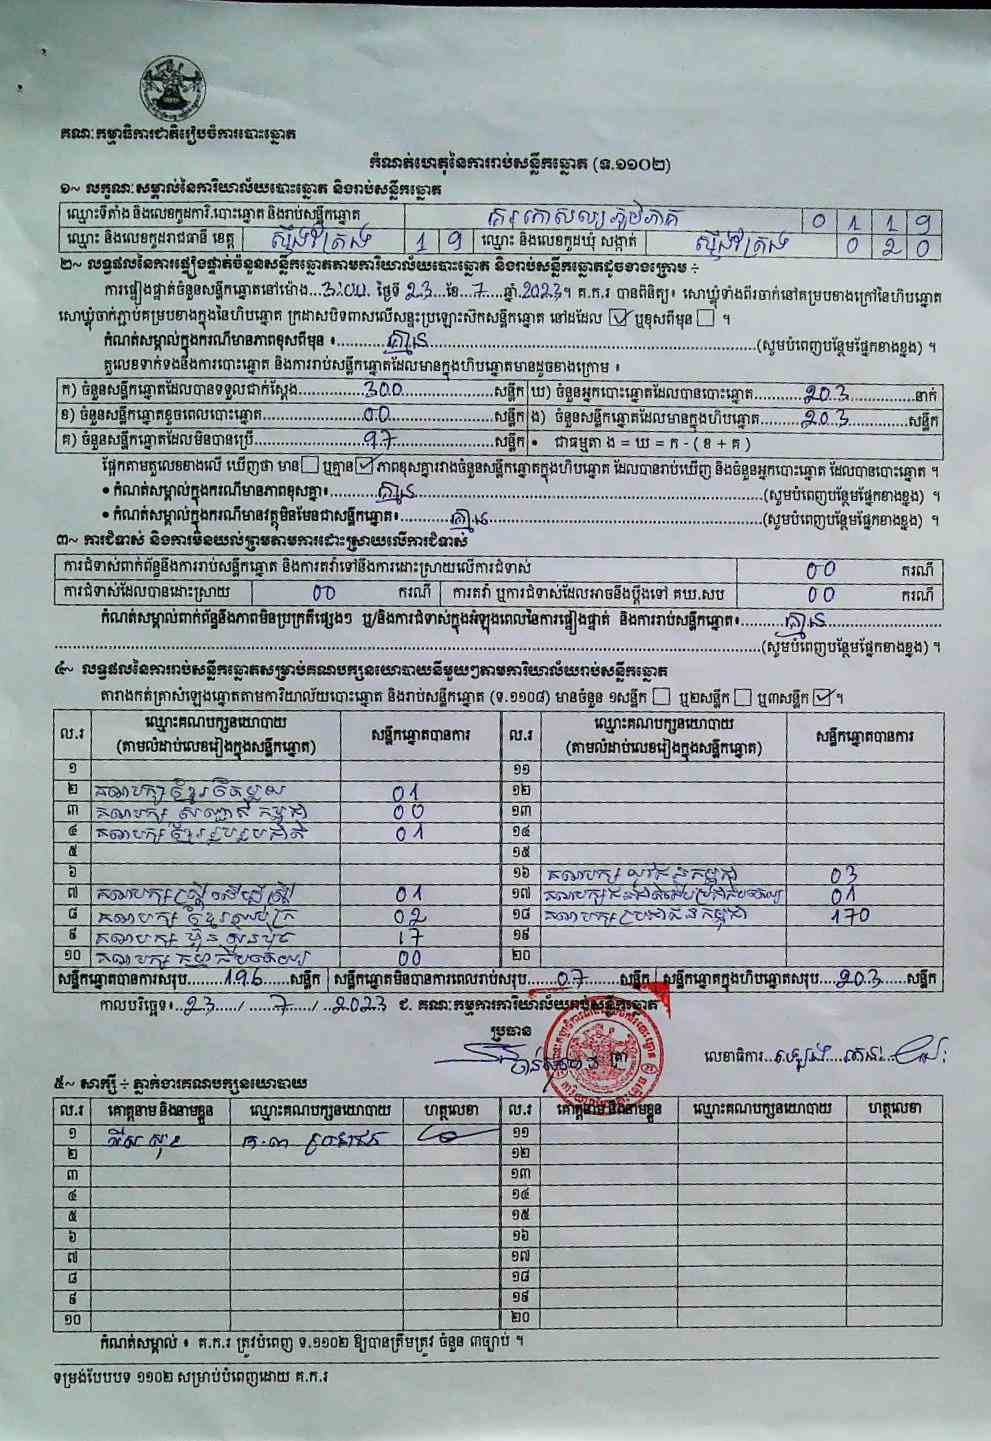 គណៈកម្មាធិការជាតិរៀបចំការបោះឆ្នោត
កំណត់ហេតុនៃការរាប់សន្លឹកឆ្នោត (ទ.១១០២)
១~ លក្ខណៈសម្គាល់នៃការិយាល័យបោះឆ្នោត និងរាប់សន្លឹកឆ្នោត
ឈ្មោះទីតាំង និងលេខកូដការិ.បោះឆ្នោត និងរាប់សន្លឹកឆ្នោត 0 1 1 9
ឈ្មោះ និងលេខកូដរាជធានី ខេត្ត ស្ទឹងត្រែង 1 9 ឈ្មោះ និងលេខកូដឃុំ សង្កាត់ ស្ទឹងត្រែង 0 2 0
២~ លទ្ធផលនៃការផ្ទៀងផ្ទាត់ចំនួនសន្លឹកឆ្នោតតាមការិយាល័យបោះឆ្នោត និងរាប់សន្លឹកឆ្នោតដូចខាងក្រោម ÷
ការផ្ទៀងផ្ទាត់ចំនួនសន្លឹកឆ្នោតនៅម៉ោង...3:00... ថ្ងៃទី 23 ខែ 7 ឆ្នាំ 2023។ គ.ក.រ បានពិនិត្យ៖ សោឃ្លុំទាំងពីរចាក់នៅគម្របខាងក្រៅនៃហិបឆ្នោត
សោឃ្លុំចាក់ភ្ជាប់គម្របខាងក្នុងនៃហិបឆ្នោត ក្រដាសបិទពាសលើសន្ទះប្រឡោះសឹកសន្លឹកឆ្នោត នៅដដែល ☑ ឬខុសពីមុន ☐ ។
កំណត់សម្គាល់ក្នុងករណីមានភាពខុសពីមុន ៖ គ្មាន (សូមបំពេញបន្ថែមផ្នែកខាងខ្នង) ។
តួលេខទាក់ទងនឹងការបោះឆ្នោត និងការរាប់សន្លឹកឆ្នោតដែលមានក្នុងហិបឆ្នោតមានដូចខាងក្រោម ៖
ក) ចំនួនសន្លឹកឆ្នោតដែលបានទទួលជាក់ស្តែង 300 សន្លឹក ឃ) ចំនួនអ្នកបោះឆ្នោតដែលបានបោះឆ្នោត 203 នាក់
ខ) ចំនួនសន្លឹកឆ្នោតខូចពេលបោះឆ្នោត 00 សន្លឹក ង) ចំនួនសន្លឹកឆ្នោតដែលមានក្នុងហិបឆ្នោត 203 សន្លឹក
គ) ចំនួនសន្លឹកឆ្នោតដែលមិនបានប្រើ 97 សន្លឹក • ជាធម្មតា ង = ឃ = ក - ( ខ + គ )
ផ្អែកតាមតួលេខខាងលើ ឃើញថា មាន ☐ ឬគ្មាន ☑ ភាពខុសគ្នារវាងចំនួនសន្លឹកឆ្នោតក្នុងហិបឆ្នោត ដែលបានរាប់ឃើញ និងចំនួនអ្នកបោះឆ្នោត ដែលបានបោះឆ្នោត ។
• កំណត់សម្គាល់ក្នុងករណីមានភាពខុសគ្នា៖ គ្មាន (សូមបំពេញបន្ថែមផ្នែកខាងខ្នង) ។
• កំណត់សម្គាល់ក្នុងករណីមានវត្ថុមិនមែនជាសន្លឹកឆ្នោត៖ គ្មាន (សូមបំពេញបន្ថែមផ្នែកខាងខ្នង) ។
៣~ ការជំទាស់ និងការមិនយល់ព្រមតាមការដោះស្រាយលើការជំទាស់
ការជំទាស់ពាក់ព័ន្ធនឹងការរាប់សន្លឹកឆ្នោត និងការតវ៉ាទៅនឹងការដោះស្រាយលើការជំទាស់ 00 ករណី
ការជំទាស់ដែលបានដោះស្រាយ 00 ករណី ការតវ៉ា ឬការជំទាស់ដែលអាចនឹងប្តឹងទៅ គឃ.សប 00 ករណី
កំណត់សម្គាល់ពាក់ព័ន្ធនឹងភាពមិនប្រក្រតីផ្សេងៗ ឬ/និងការជំទាស់ក្នុងអំឡុងពេលនៃការផ្ទៀងផ្ទាត់ និងការរាប់សន្លឹកឆ្នោត៖ គ្មាន
(សូមបំពេញបន្ថែមផ្នែកខាងខ្នង) ។
៤~ លទ្ធផលនៃការរាប់សន្លឹកឆ្នោតសម្រាប់គណបក្សនយោបាយនីមួយៗតាមការិយាល័យរាប់សន្លឹកឆ្នោត
តារាងកត់ត្រាសំឡេងឆ្នោតតាមការិយាល័យបោះឆ្នោត និងរាប់សន្លឹកឆ្នោត (ទ.១១០៨) មានចំនួន ១សន្លឹក ☐ ឬ២សន្លឹក ☐ ឬ៣សន្លឹក ☑ ។
ល.រ ឈ្មោះគណបក្សនយោបាយ (តាមលំដាប់លេខរៀងក្នុងសន្លឹកឆ្នោត) សន្លឹកឆ្នោតបានការ ល.រ ឈ្មោះគណបក្សនយោបាយ (តាមលំដាប់លេខរៀងក្នុងសន្លឹកឆ្នោត) សន្លឹកឆ្នោតបានការ
១ ១១
២ គណបក្ស ខ្មែរតែមួយ 01 ១២
៣ គណបក្ស កម្ពុជា 00 ១៣
៤ គណបក្ស ខ្មែររួបរួមជាតិ 01 ១៤
៥ ១៥
៦ ១៦ គណបក្ស យុវជនកម្ពុជា 03
៧ គណបក្ស ស្ត្រីដើម្បីស្ត្រី 01 ១៧ 01
៨ គណបក្ស ខ្មែរ 02 ១៨ គណបក្ស ប្រជាជនកម្ពុជា 170
៩ គណបក្ស ហ៊្វុនស៊ិនប៉ិច 17 ១៩
១០ គណបក្ស 00 ២០
សន្លឹកឆ្នោតបានការសរុប 196 សន្លឹក សន្លឹកឆ្នោតមិនបានការពេលរាប់សរុប 07 សន្លឹក សន្លឹកឆ្នោតក្នុងហិបឆ្នោតសរុប 203 សន្លឹក
កាលបរិច្ឆេទ៖ 23 / 7 / 2023 ជ. គណៈកម្មការការិយាល័យរាប់សន្លឹកឆ្នោត
ប្រធាន
ត្រា លេខាធិការ
៥~ សាក្សី ÷ ភ្នាក់ងារគណបក្សនយោបាយ
ល.រ គោត្តនាម និងនាមខ្លួន ឈ្មោះគណបក្សនយោបាយ ហត្ថលេខា ល.រ គោត្តនាម និងនាមខ្លួន ឈ្មោះគណបក្សនយោបាយ ហត្ថលេខា
១ ១១
២ ១២
៣ ១៣
៤ ១៤
៥ ១៥
៦ ១៦
៧ ១៧
៨ ១៨
៩ ១៩
១០ ២០
កំណត់សម្គាល់ ៖ គ.ក.រ ត្រូវបំពេញ ទ.១១០២ ឱ្យបានត្រឹមត្រូវ ចំនួន ៣ច្បាប់ ។
ទម្រង់បែបបទ ១១០២ សម្រាប់បំពេញដោយ គ.ក.រ